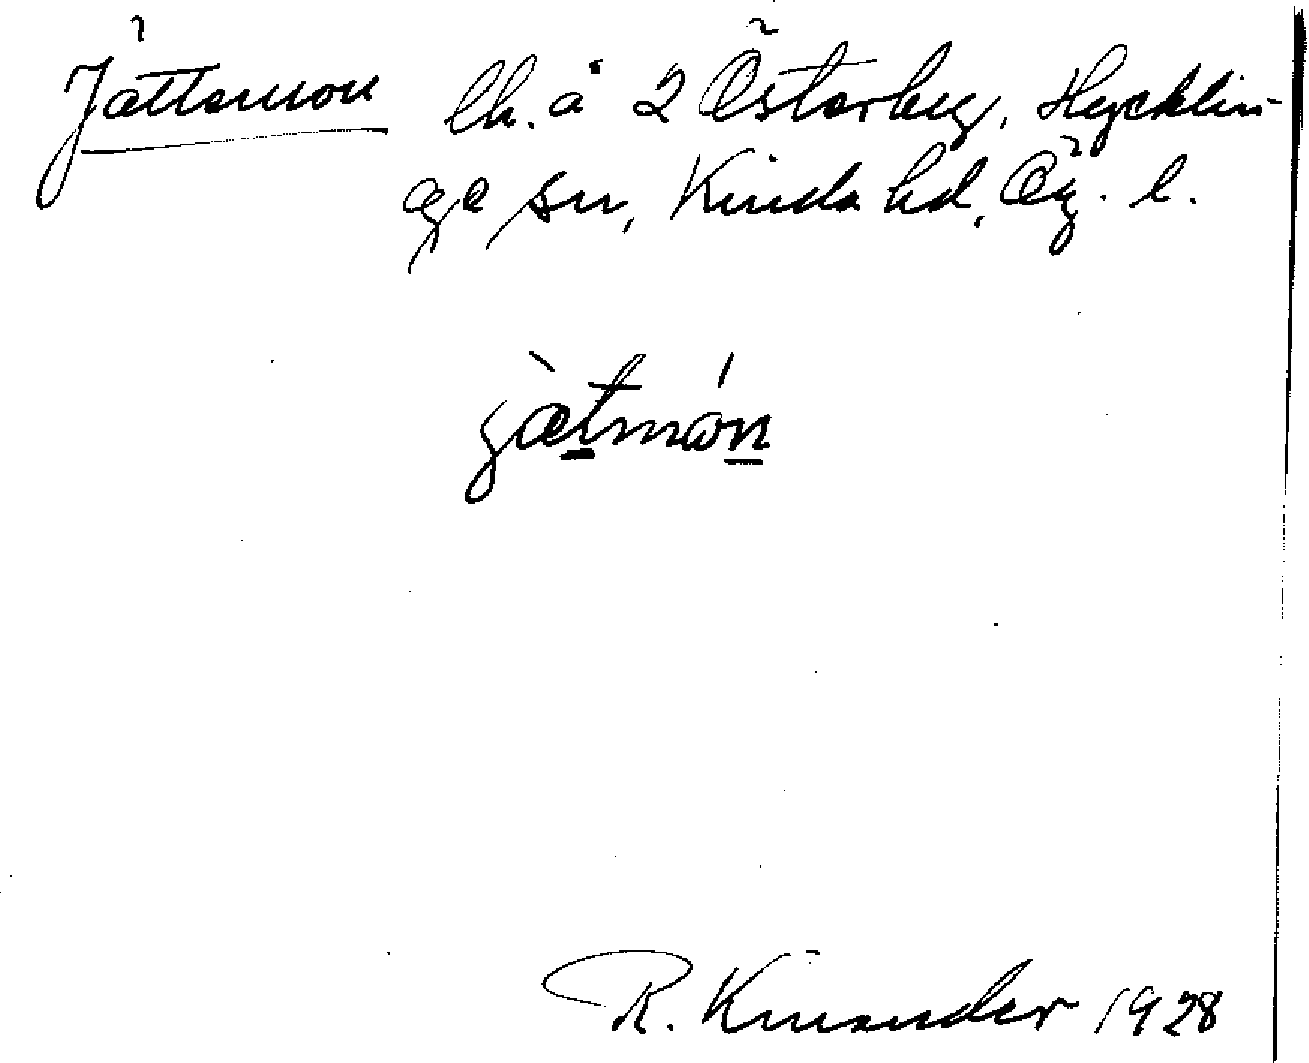 Jättemon lh. å 2 Österby, Hycklin-
ge sn, Kinda hd, Ög. l.
jæ̀tmón
R. Kinander 1928